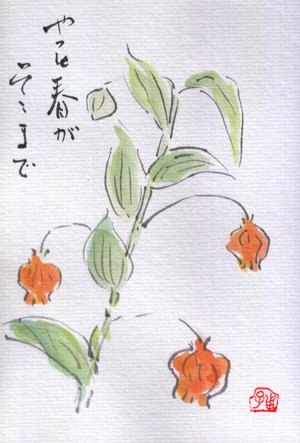 やっと春が
そこまで